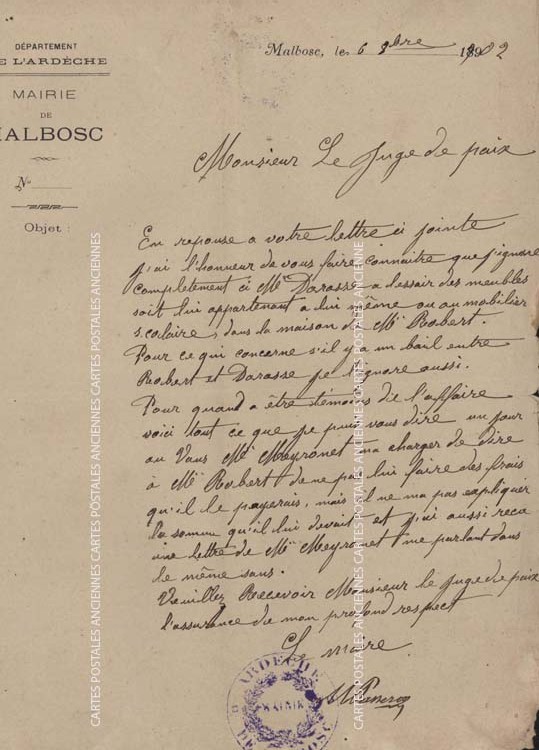 DÉPARTEMENT
DE L'ARDÈCHE
MAIRIE
DE
MALBOSC
N°
Objet :
Malbosc, le 6 9bre 1902
Monsieur Le Juge de paix
En reponse a votre lettre ci jointe
j'ai l'honneur de vous faire connaitre que j'ignore
completement ci Mr Darasse a des meubles
soit lui appartenant a lui même ou au mobilier
scolaire, dans la maison de Mr Robert.
Pour ce qui concerne s'il y a un bail entre
Robert et Darasse je l'ignore aussi.
Pour quand a être témoins de l'affaire
voici tout ce que je puis vous dire un jour
au Vans Mr Meyronet ma charger de dire
à Mr Robert de ne pas lui faire des frais
qu'il le payerais, mais il ne ma pas expliquer
la somme qu'il lui devait et j'ai aussi recu
une lettre de Mr Meyronet me parlant dans
le même sans.
Veuillez Recevoir Monsieur le Juge de paix
l'assurance de mon profond respect
Le maire
ARDÈCHE
MAIRIE
DE MALBOSC
CARTES POSTALES ANCIENNES CARTES POSTALES ANCIENNES CARTES POSTALES ANCIENNES
CARTES POSTALES ANCIENNES CARTES POSTALES ANCIENNES CARTES POSTALES ANCIENNES